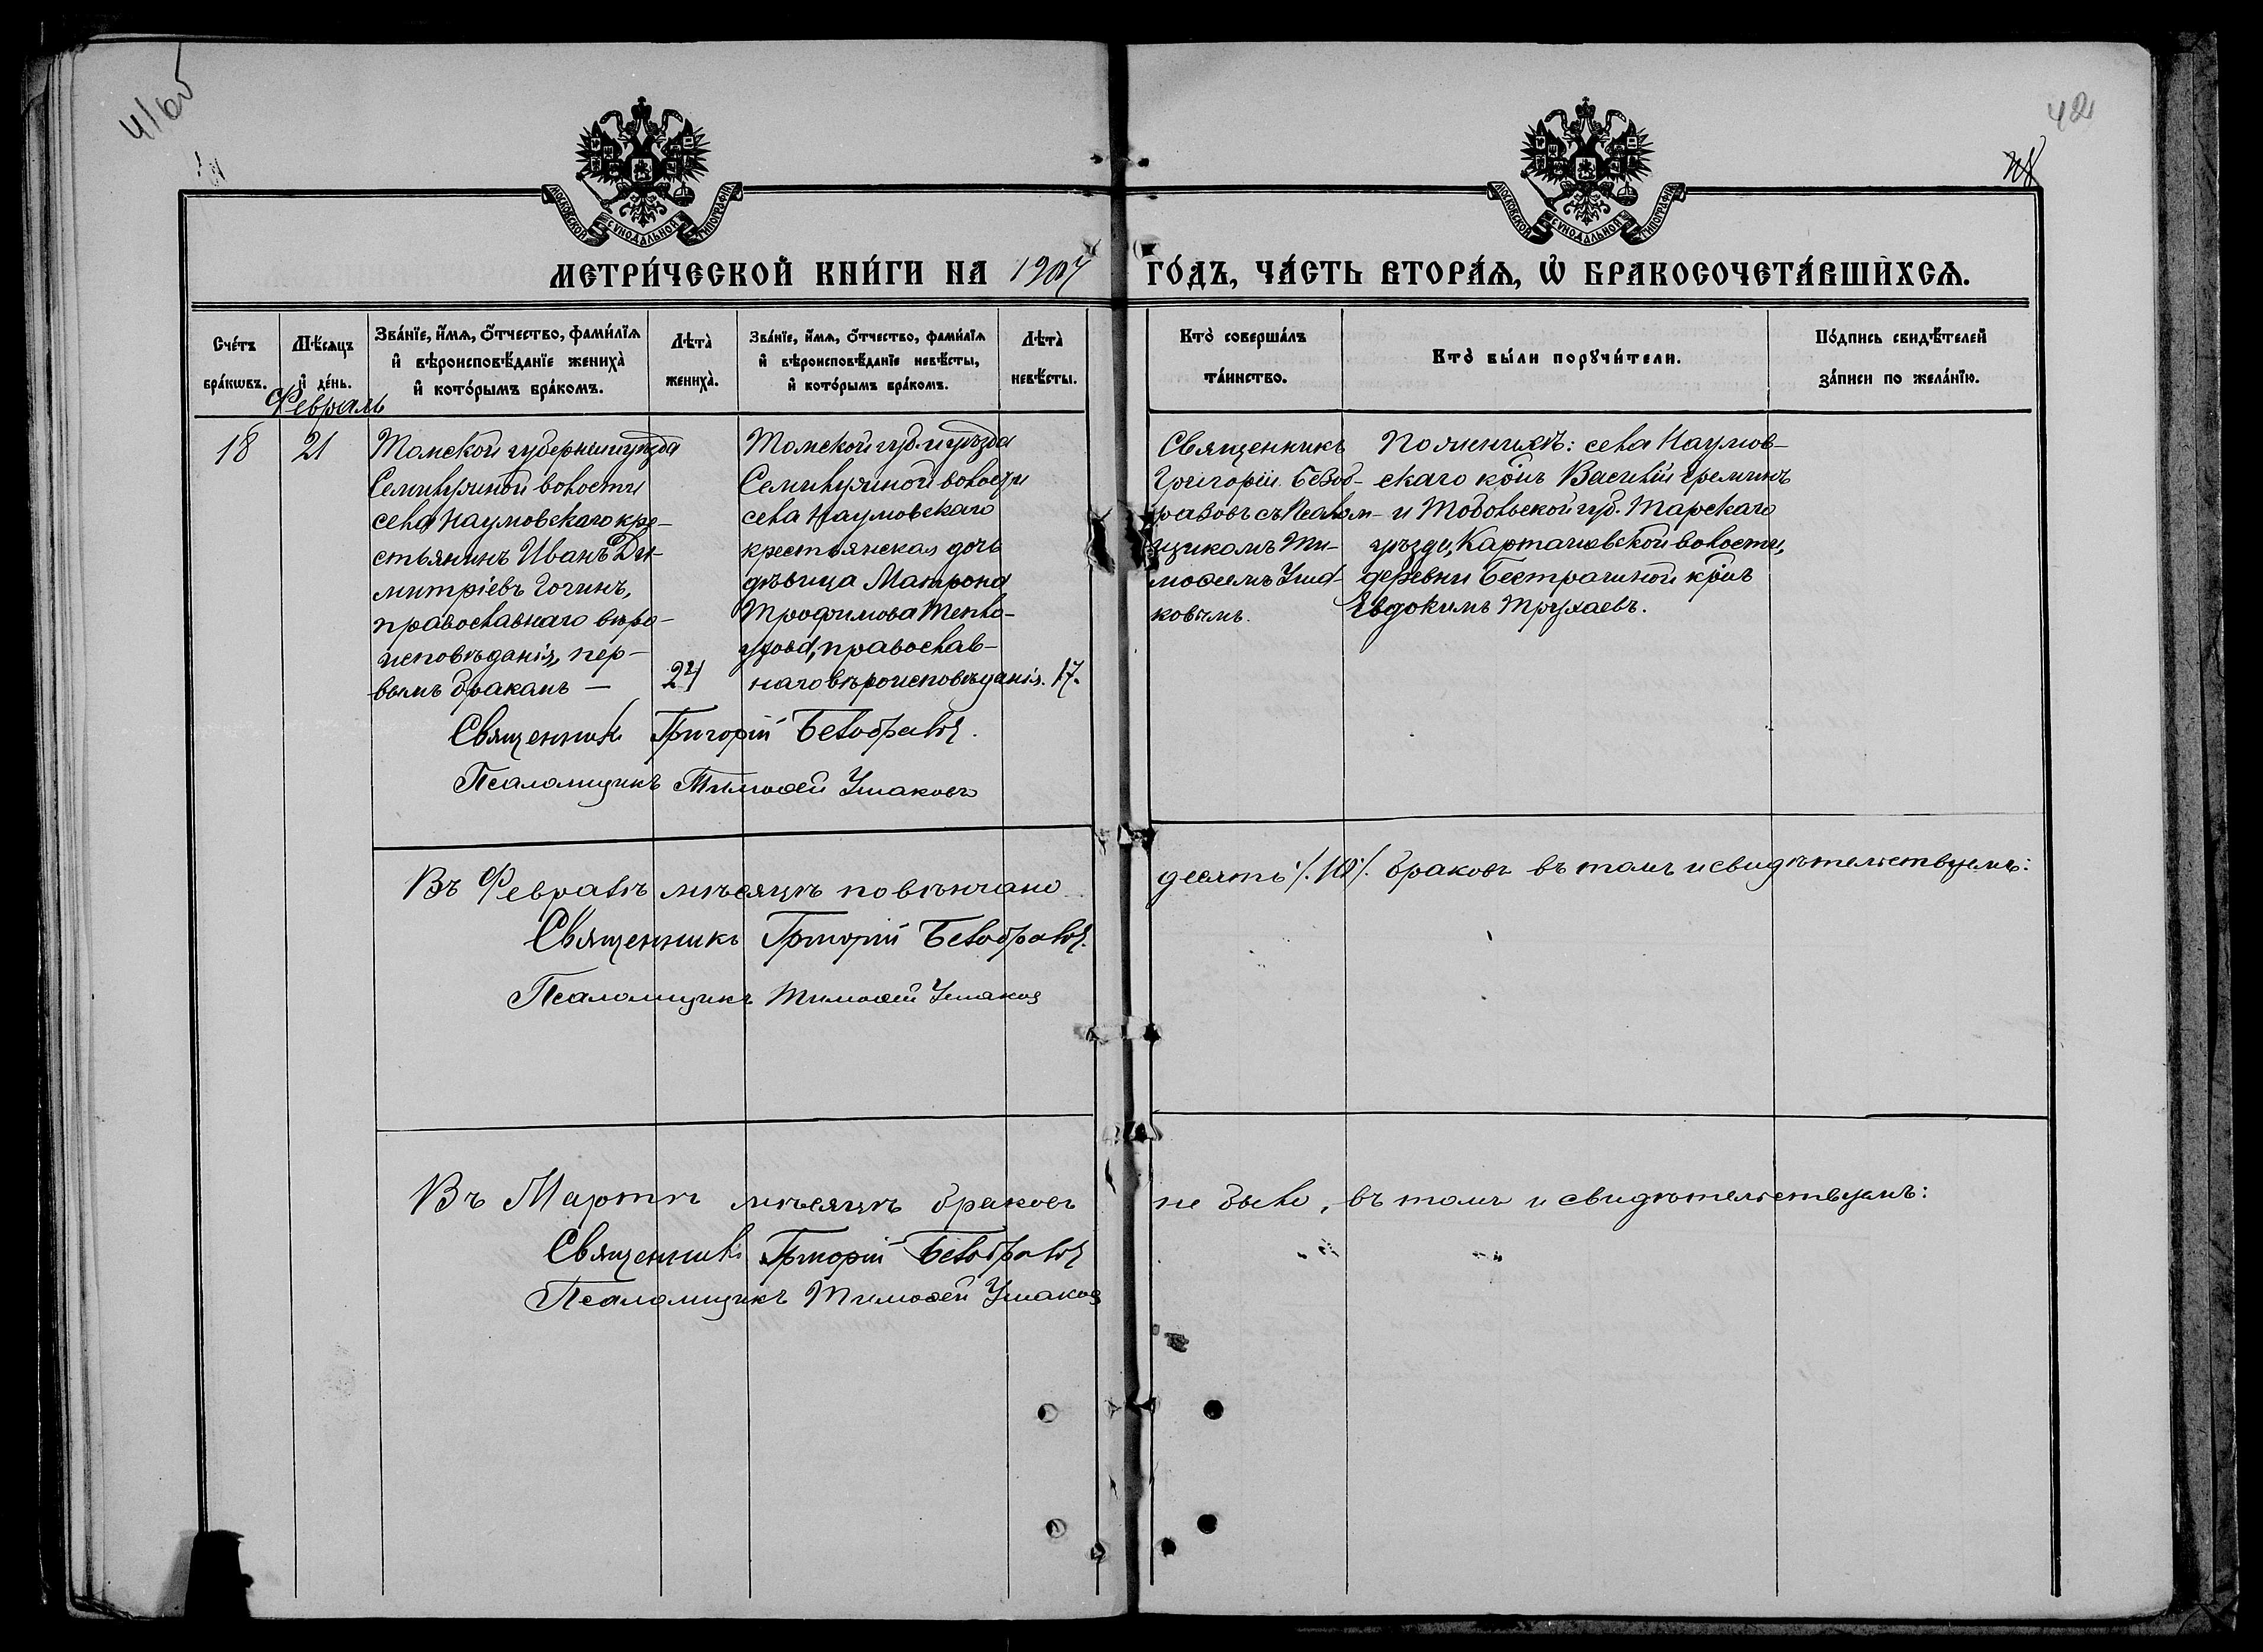 41об
42
МОСКОВСКОЙ СУНОДАЛЬНОЙ ТИПОГРАФІИ
МОСКОВСКОЙ СУНОДАЛЬНОЙ ТИПОГРАФІИ
МЕТРИ́ЧЕСКОЙ КНИ́ГИ НА 1907 ГО́ДЪ, ЧА́СТЬ ВТОРА́Ѧ, Ѽ БРАКОСОЧЕТА́ВШИХСѦ.
Сче́тъ бра́кѡвъ.
Мѣ́сѧцъ и҆ де́нь.
Зва́нїе, и҆́мѧ, ѻ҆́тчество, фами́лїѧ
и҆ вѣроисповѣ́данїе жениха̀
и҆ кото́рымъ бра́комъ.
Лѣта̀ жениха̀.
Зва́нїе, и҆́мѧ, ѻ҆́тчество, фами́лїѧ
и҆ вѣроисповѣ́данїе невѣ́сты,
и҆ кото́рымъ бра́комъ.
Лѣта̀ невѣ́сты.
Кто̀ соверша́лъ
та́инство.
Кто̀ бы́ли порꙋчи́тели.
По́дпись свидѣ́телей
за́писи по жела́нїю.
Февраль
18
21
Томской губерніи и уѣзда
Семилужной волости
села Наумовскаго кре-
стьянинъ Иванъ Ди-
митріевъ Гогинъ,
православнаго вѣро-
исповѣданія, пер-
вымъ бракомъ —
24
Томской губ. и уѣзда
Семилужной волости
села Наумовскаго
крестьянская дочь
дѣвица Матрона
Трофимова Тепло-
ухова, православ-
наго вѣроисповѣданія.
17.
Священникъ
Григорій Бѣлоб-
разовъ съ Псалом-
щикомъ Ти-
моѳеемъ Уша-
ковымъ.
По женихѣ: села Наумов-
скаго кр̃инъ Василій Гремминъ
и Тобольской губ. Тарскаго
уѣзда, Карташовской волости,
деревни Бестрашной кр̃инъ
Евдокимъ Трухаевъ.
Священникъ Григорій Бѣлобразовъ.
Псаломщикъ Тимоѳей Ушаковъ
Въ Февралѣ мѣсяцѣ повѣнчано десять ./. 10 ./. браковъ въ томъ и свидѣтельствуемъ:
Священникъ Григорій Бѣлобразовъ.
Псаломщикъ Тимоѳей Ушаковъ
Въ Мартѣ мѣсяцѣ браковъ не было, въ томъ и свидѣтельствуемъ:
Священникъ Григорій Бѣлобразовъ
Псаломщикъ Тимоѳей Ушаковъ